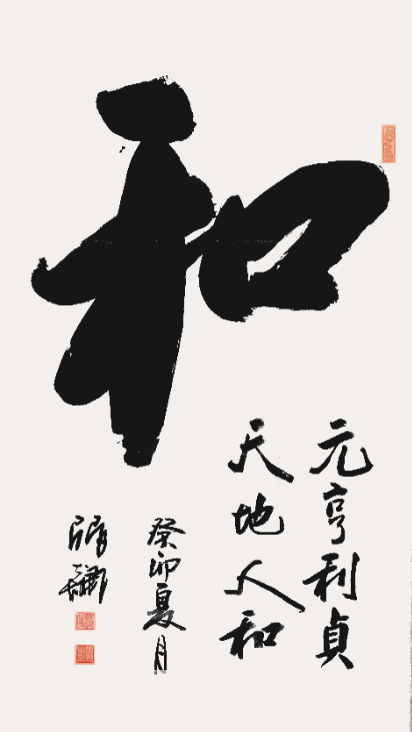 和
元亨利貞
天地人和
癸卯夏月